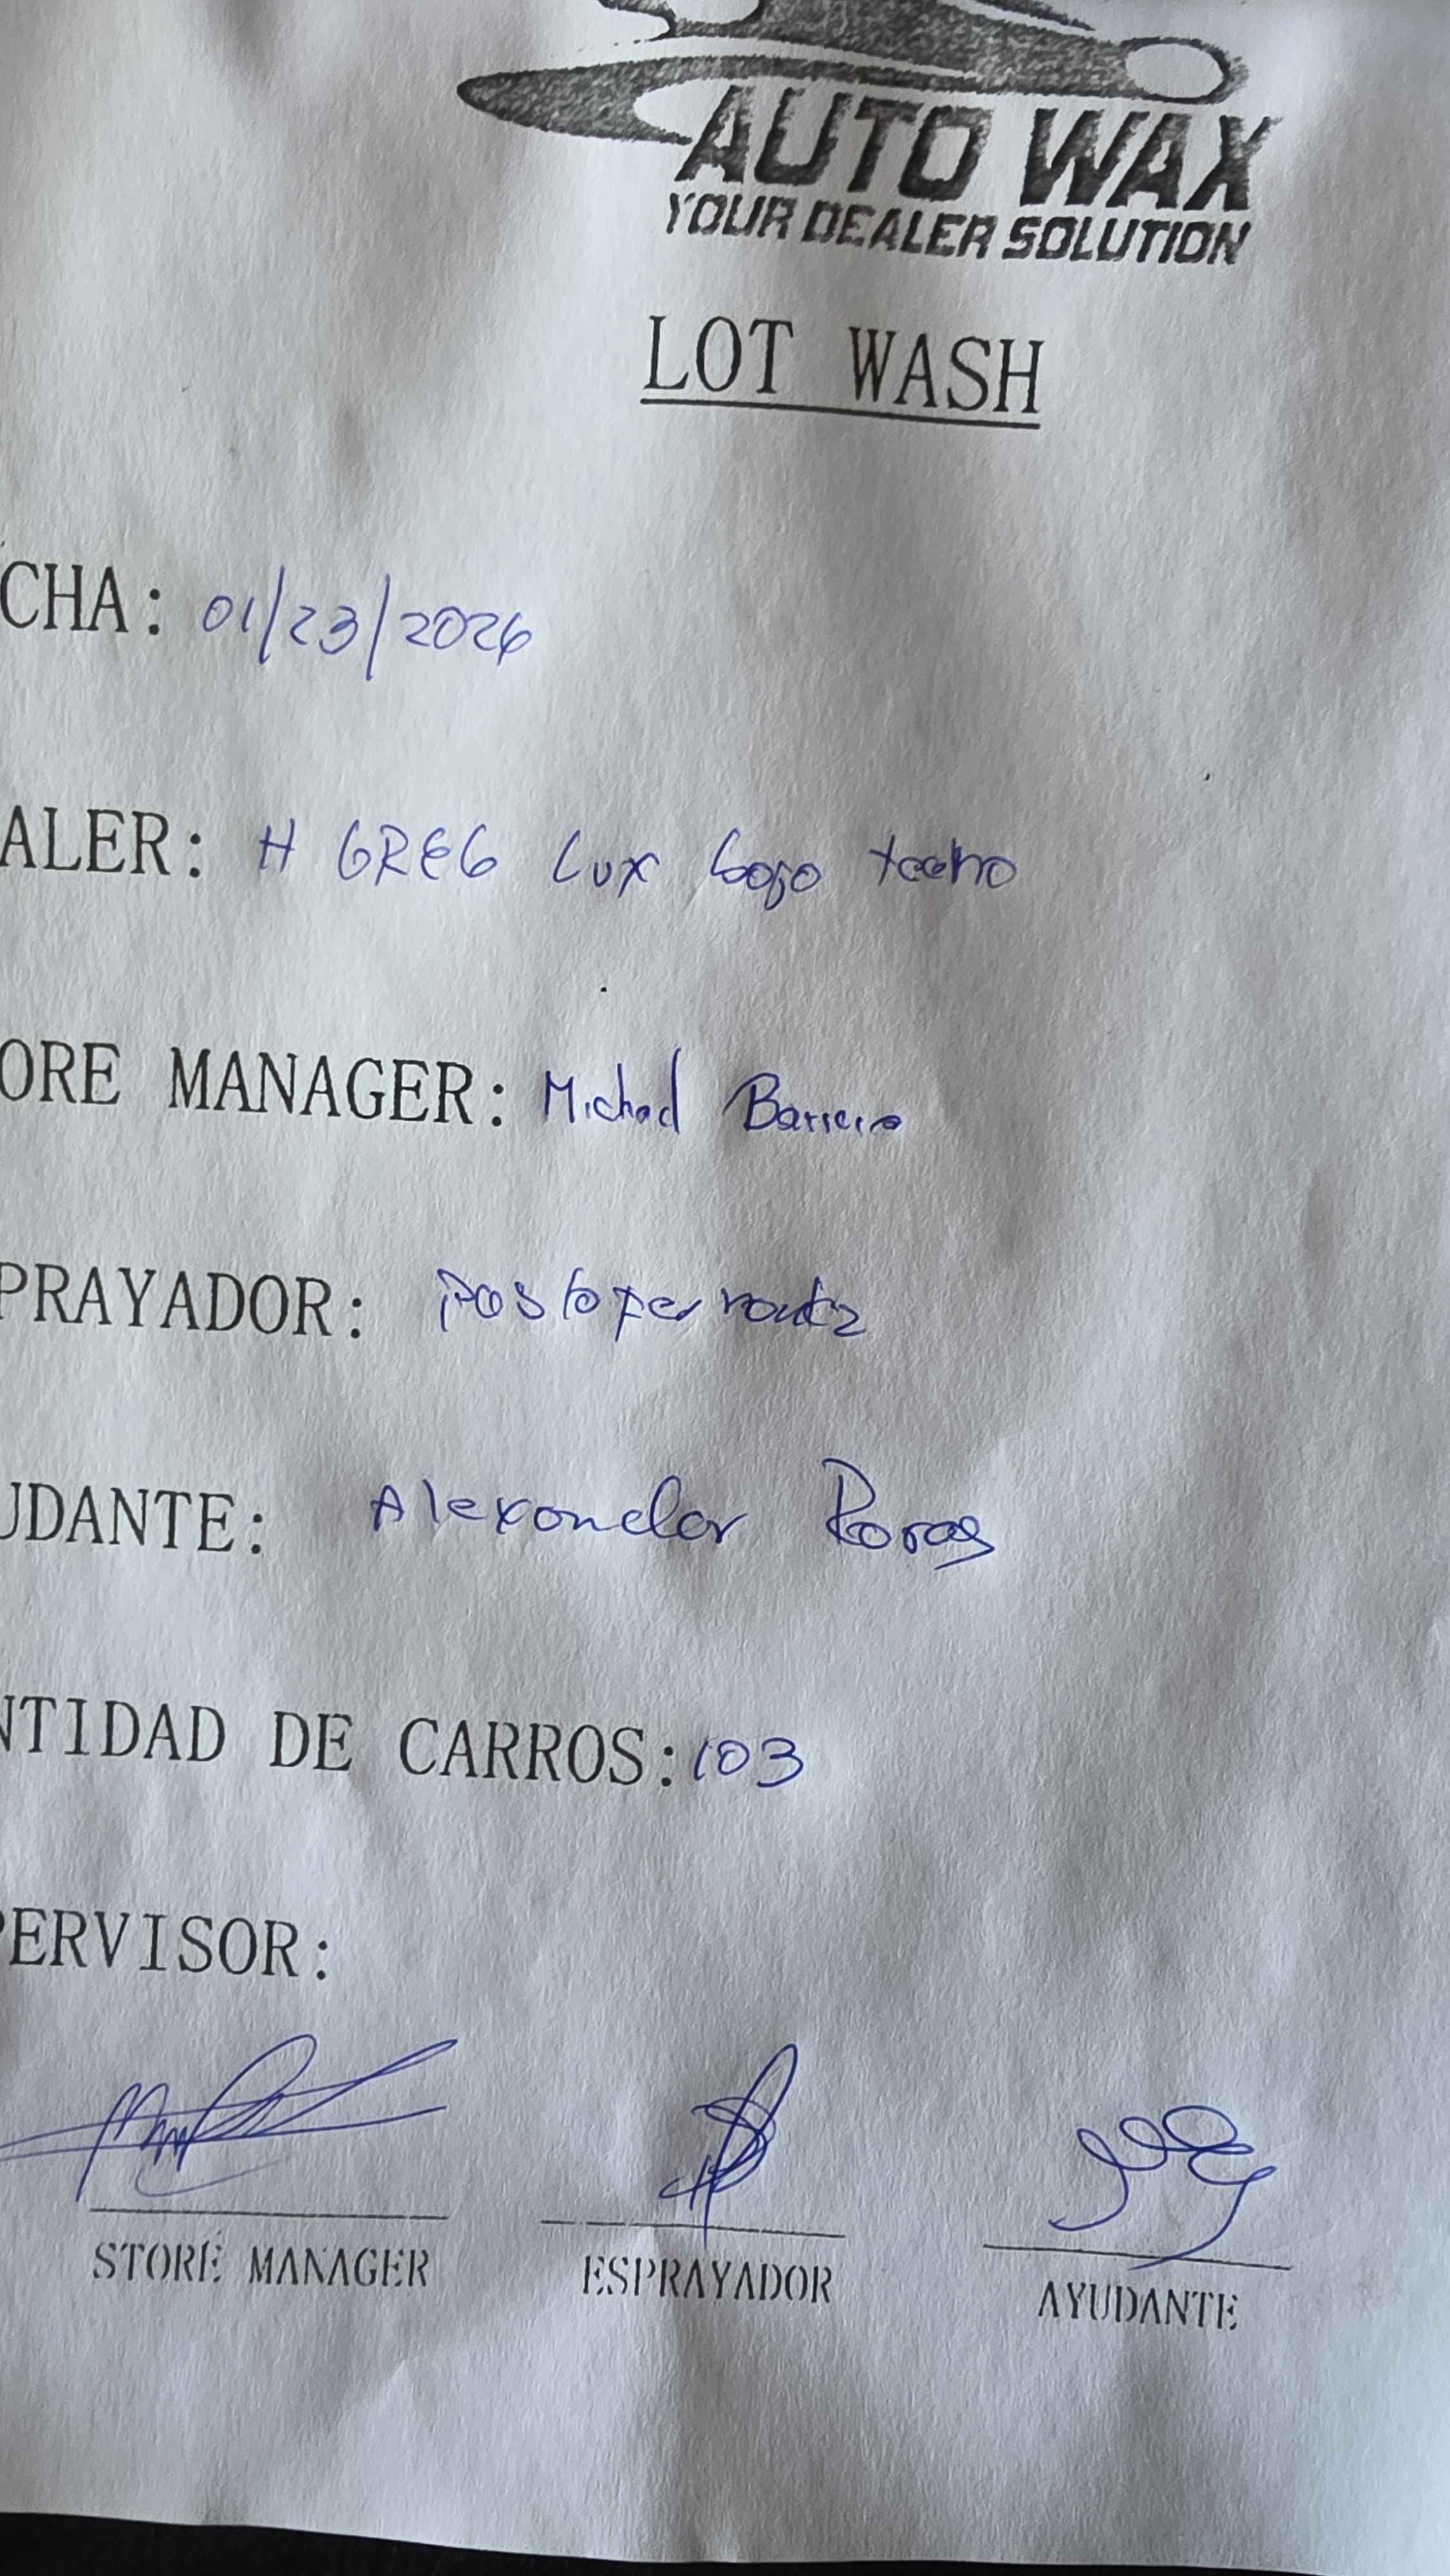 AUTO WAX
YOUR DEALER SOLUTION
LOT WASH
CHA: 01/23/2026
ALER: H GREG Lux bajo techo
ORE MANAGER: Michael Barrera
PRAYADOR:
UDANTE: Alexander
NTIDAD DE CARROS: 103
PERVISOR:
STORE MANAGER ESPRAYADOR AYUDANTE